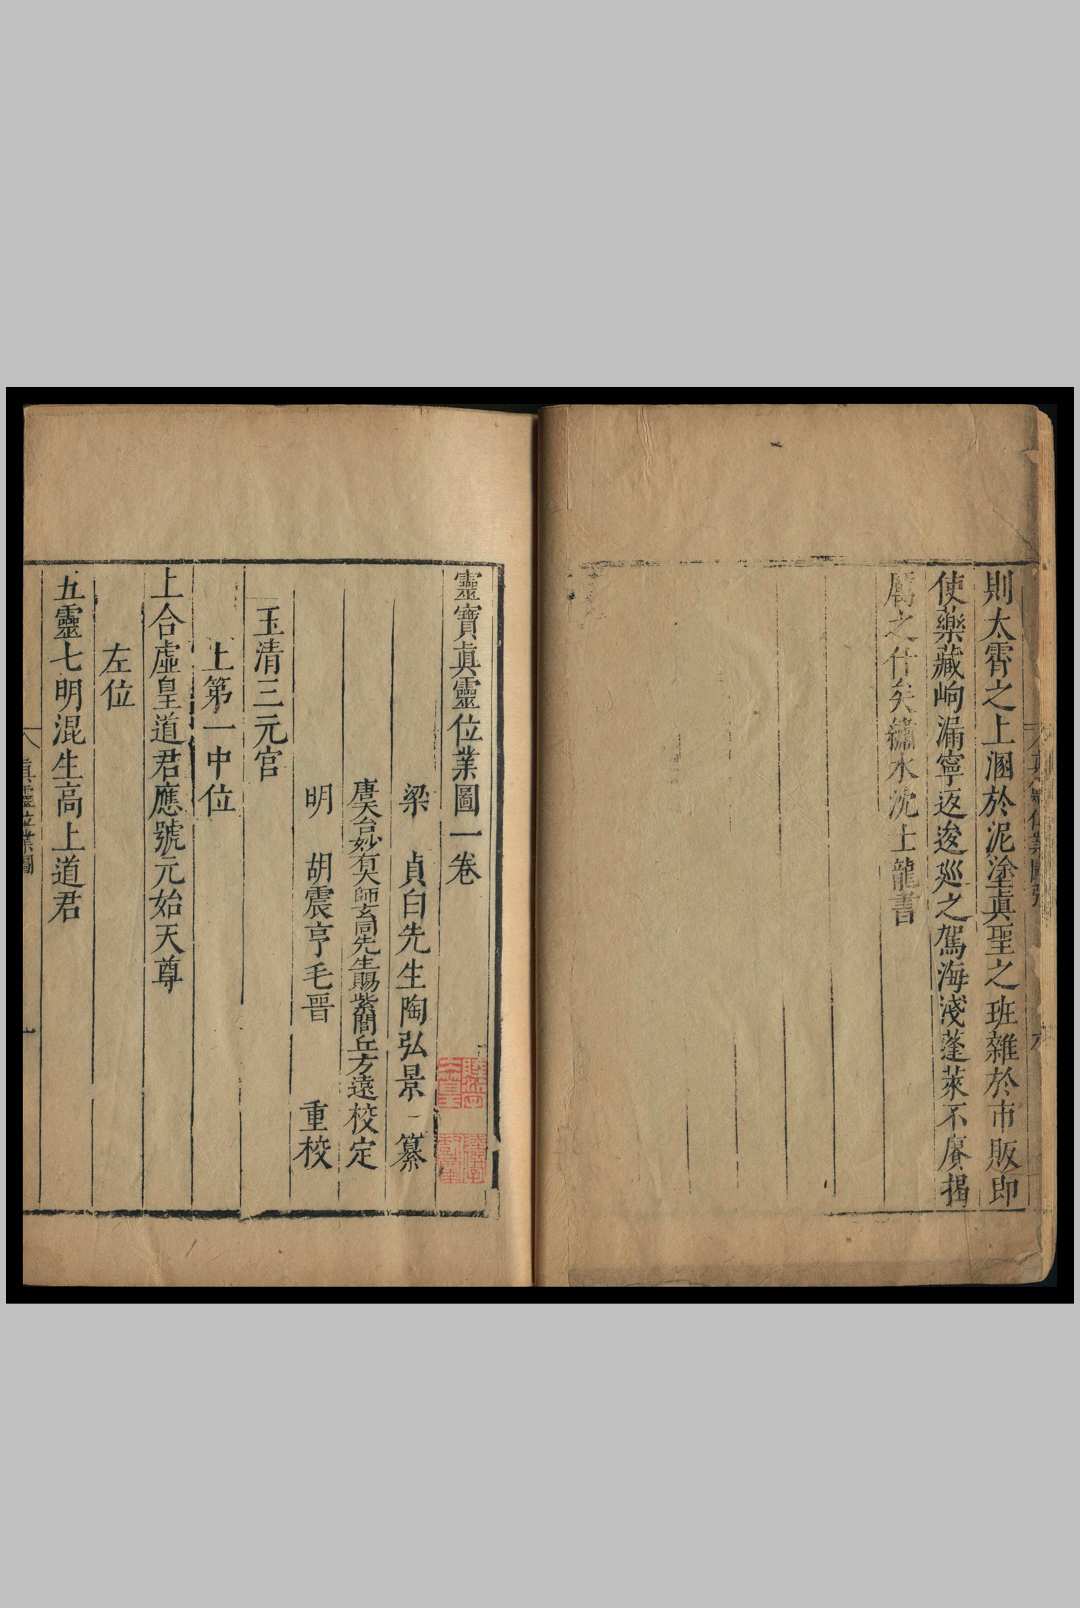 則太霄之上溷於泥塗眞聖之班雜於市販即
使藥藏岣漏寧返逡廵之駕海淺蓬萊不賡揭
厲之什矣繡水沈士龍書
靈寶眞靈位業圖一卷
梁 貞白先生陶弘景 纂
唐天台妙有大師玄同先生賜紫閭丘方遠校定
明 胡震亨毛晉 重校
玉清三元宮
上第一中位
上合虛皇道君應號元始天尊
左位
五靈七明混生高上道君
眞靈位業圖